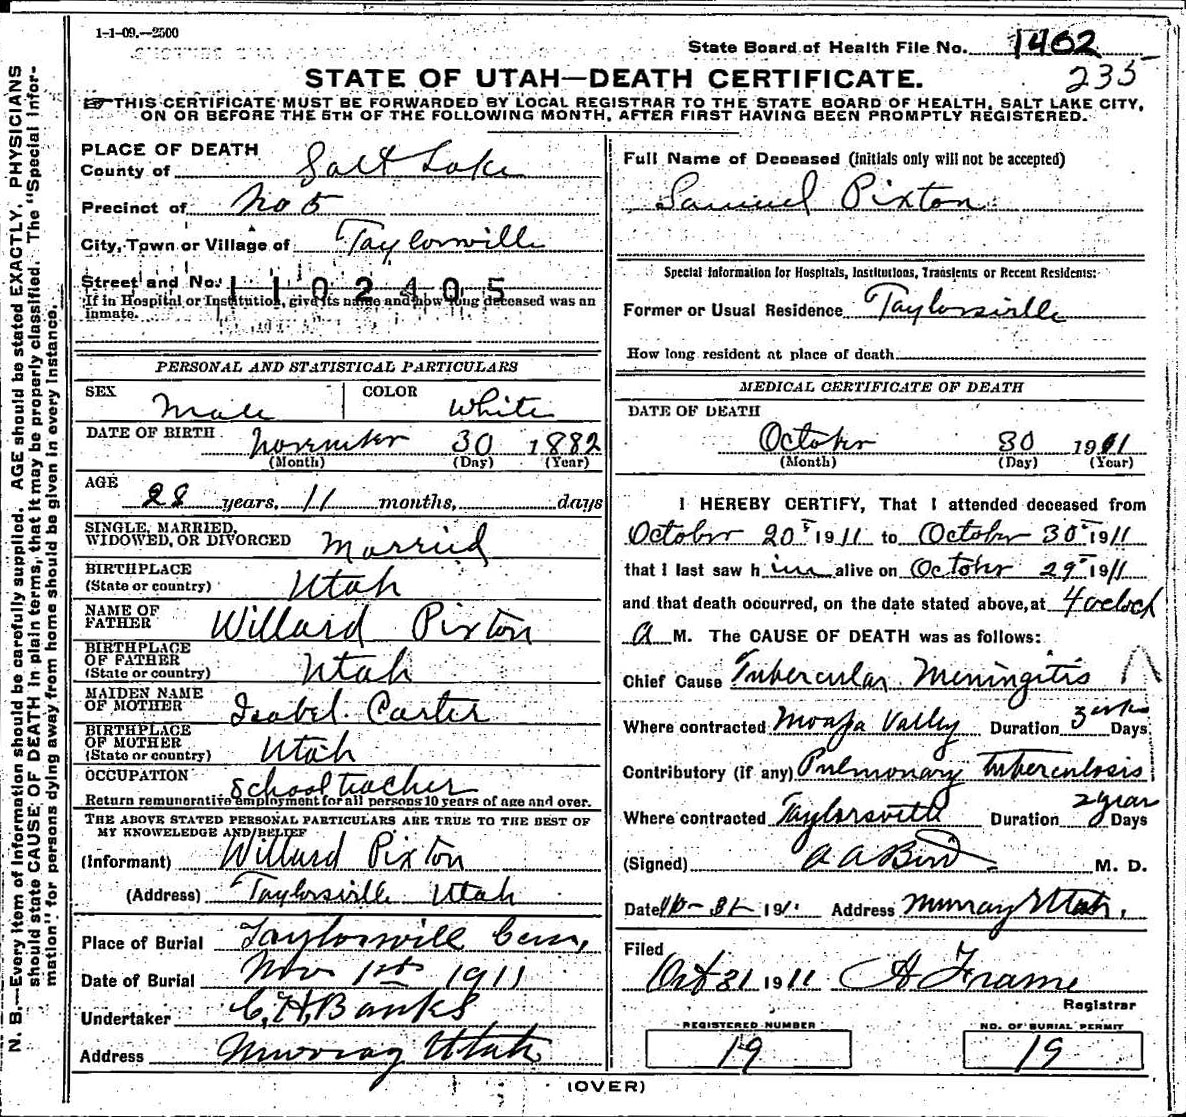 1-1-09.—2500
State Board of Health File No. 1462
235
STATE OF UTAH—DEATH CERTIFICATE.
THIS CERTIFICATE MUST BE FORWARDED BY LOCAL REGISTRAR TO THE STATE BOARD OF HEALTH, SALT LAKE CITY,
ON OR BEFORE THE 5TH OF THE FOLLOWING MONTH, AFTER FIRST HAVING BEEN PROMPTLY REGISTERED.
N. B.—Every item of information should be carefully supplied. AGE should be stated EXACTLY. PHYSICIANS
should state CAUSE OF DEATH in plain terms, that it may be properly classified. The "Special Infor-
mation" for persons dying away from home should be given in every instance.
PLACE OF DEATH
County of Salt Lake
Precinct of No 5
City, Town or Village of Taylorsville
Street and No.
1102405
If in Hospital or Institution, give its name and how long deceased was an
inmate.
PERSONAL AND STATISTICAL PARTICULARS
SEX Male
COLOR White
DATE OF BIRTH November 30 1882
(Month) (Day) (Year)
AGE 28 years, 11 months, days
SINGLE, MARRIED,
WIDOWED, OR DIVORCED Married
BIRTHPLACE
(State or country) Utah
NAME OF
FATHER Willard Pixton
BIRTHPLACE
OF FATHER
(State or country) Utah
MAIDEN NAME
OF MOTHER Isabel Carter
BIRTHPLACE
OF MOTHER
(State or country) Utah
OCCUPATION School teacher
Return remunerative employment for all persons 10 years of age and over.
THE ABOVE STATED PERSONAL PARTICULARS ARE TRUE TO THE BEST OF
MY KNOWLEDGE AND BELIEF
(Informant) Willard Pixton
(Address) Taylorsville Utah
Place of Burial Taylorsvill Cem,
Date of Burial Nov 1st 1911
Undertaker C. H. Banks
Address Murray Utah
Full Name of Deceased (initials only will not be accepted)
Samuel Pixton
Special Information for Hospitals, Institutions, Transients or Recent Residents:
Former or Usual Residence Taylorsville
How long resident at place of death
MEDICAL CERTIFICATE OF DEATH
DATE OF DEATH
October 30 1911
(Month) (Day) (Year)
I HEREBY CERTIFY, That I attended deceased from
October 20 1911 to October 30 1911
that I last saw him alive on October 29 1911
and that death occurred, on the date stated above, at 4 oclock
A M. The CAUSE OF DEATH was as follows:
Chief Cause Tubercular Meningitis
Where contracted Moapa Valley Duration 3 wks Days
Contributory (if any) Pulmonary Tuberculosis
Where contracted Taylorsville Duration 2 year Days
(Signed) A A Bird M. D.
Date 10-31- 191 Address Murray Utah,
Filed
Oct 31 1911 A Frame
Registrar
REGISTERED NUMBER
19
NO. OF BURIAL PERMIT
19
(OVER)